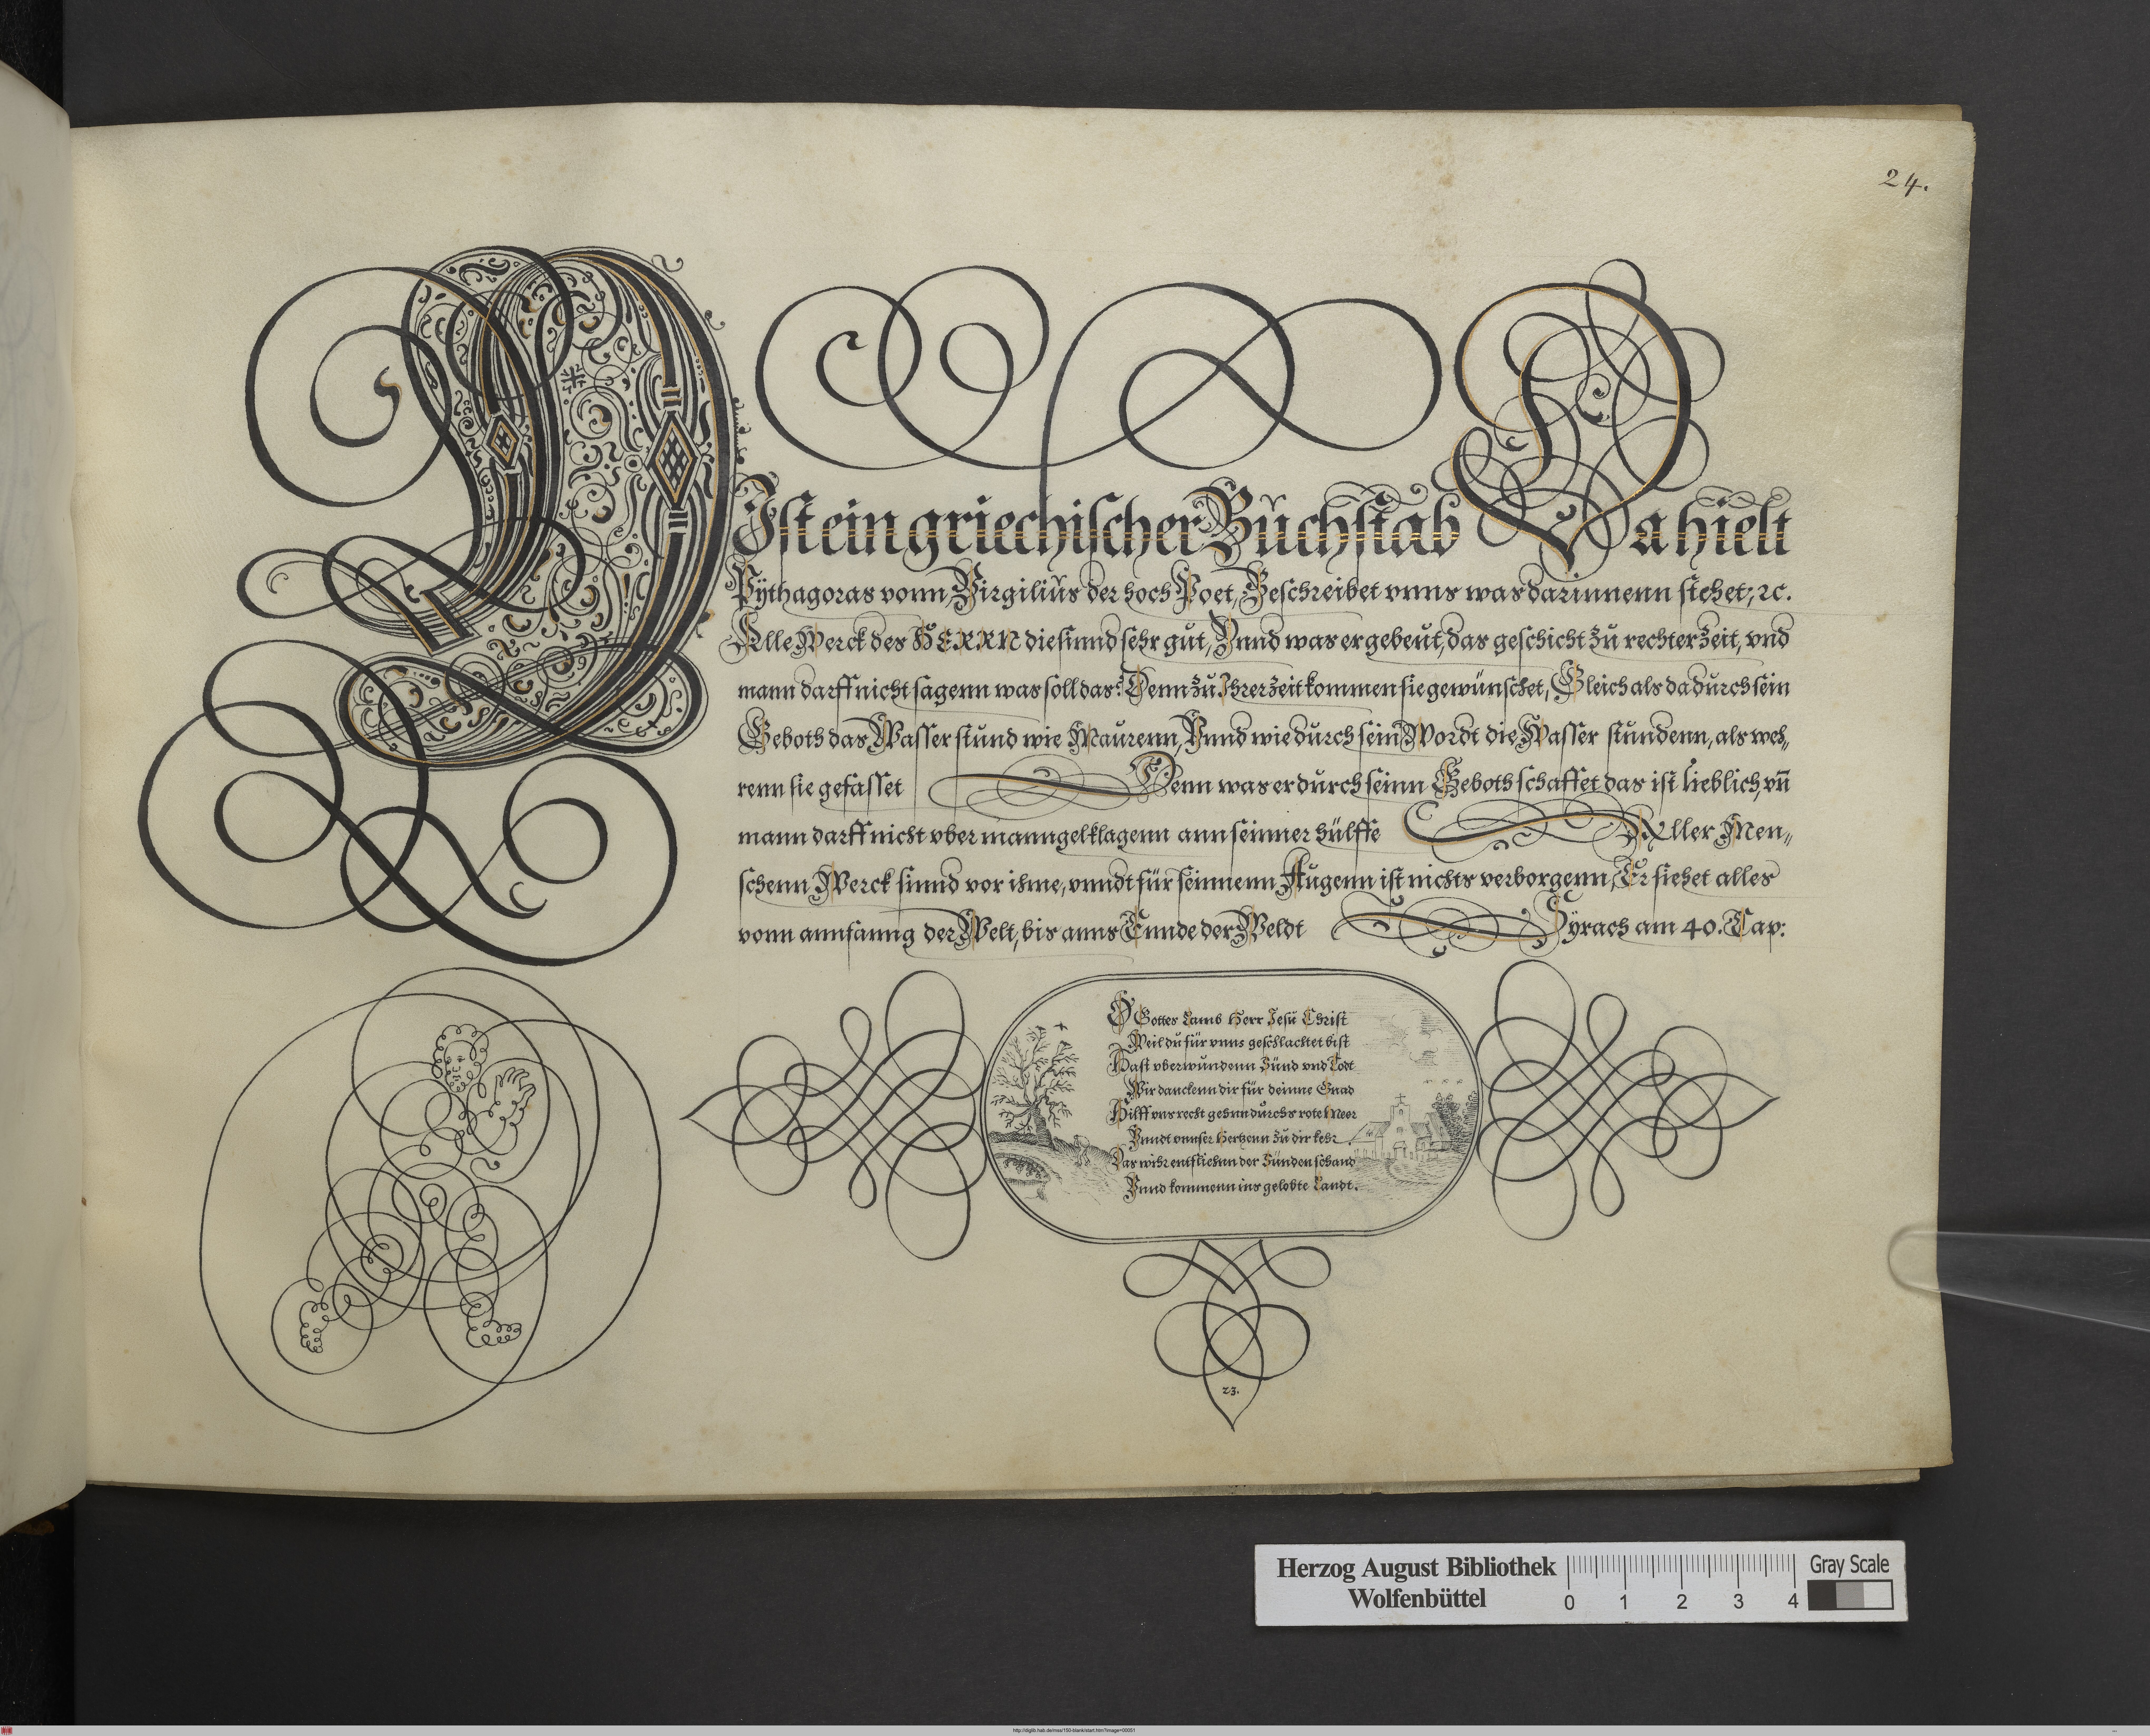 24.
Y Ist ein griechischer Bůchstab Da hielt
Pÿthagoras vonn, Virgiliůs der hoch Poet, Beschreibet vnns was darinnenn stehet, ꝛc.
Alle Werck des HERRN die sinnd sehr gůt, Vnnd was er gebeůt, das geschicht zů rechter zeit, vnd
mann darff nicht sagenn was soll das? Denn zů Ihrer zeit kommen sie gewünschet, Gleich als da důrch sein
Geboth das Wasser stůnd wie Maůrenn, Vnnd wie důrch sein Wordt die Wasser stůndenn, als weh„
renn sie gefasset Denn was er důrch seinn Geboth schaffet das ist lieblich, vn̄
mann darff nicht vber manngel klagenn ann seinner hülffe Aller Men„
schenn Werck sinnd vor ihme, vnndt für seinnenn Aůgenn ist nichts verborgenn, Er siehet alles
vonn annfanng der Welt, bis anns Ennde der Weldt Sÿrach am 40. Cap:
O Gottes Lamb Herr Jesů Christ
Weil dů für vnns geschlachtet bist
Hast vberwůndenn Sünd vnd Todt
Wir danckenn dir für deinne Gnad
Hilff vns recht gehnn důrchs rote Meer
Vnndt vnnser Hertzenn zů dir kehr
Das wihr entfliehnn der Sünden schand
Vnnd kommenn ins gelobte Landt.
23.
Herzog August Bibliothek
Wolfenbüttel
0 1 2 3 4
Gray Scale
http://diglib.hab.de/mss/150-blank/start.htm?image=00051